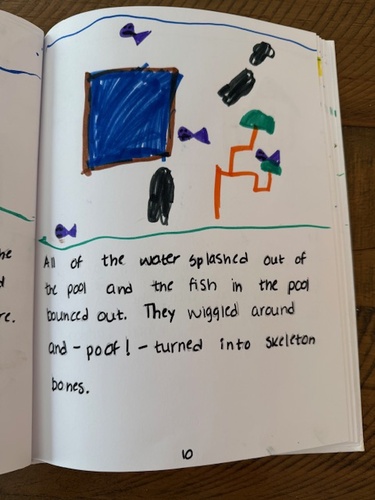 he
d
re.
All of the water splashed out of
the pool and the fish in the pool
bounced out. They wiggled around
and - poof! - turned into skeleton
bones.
10